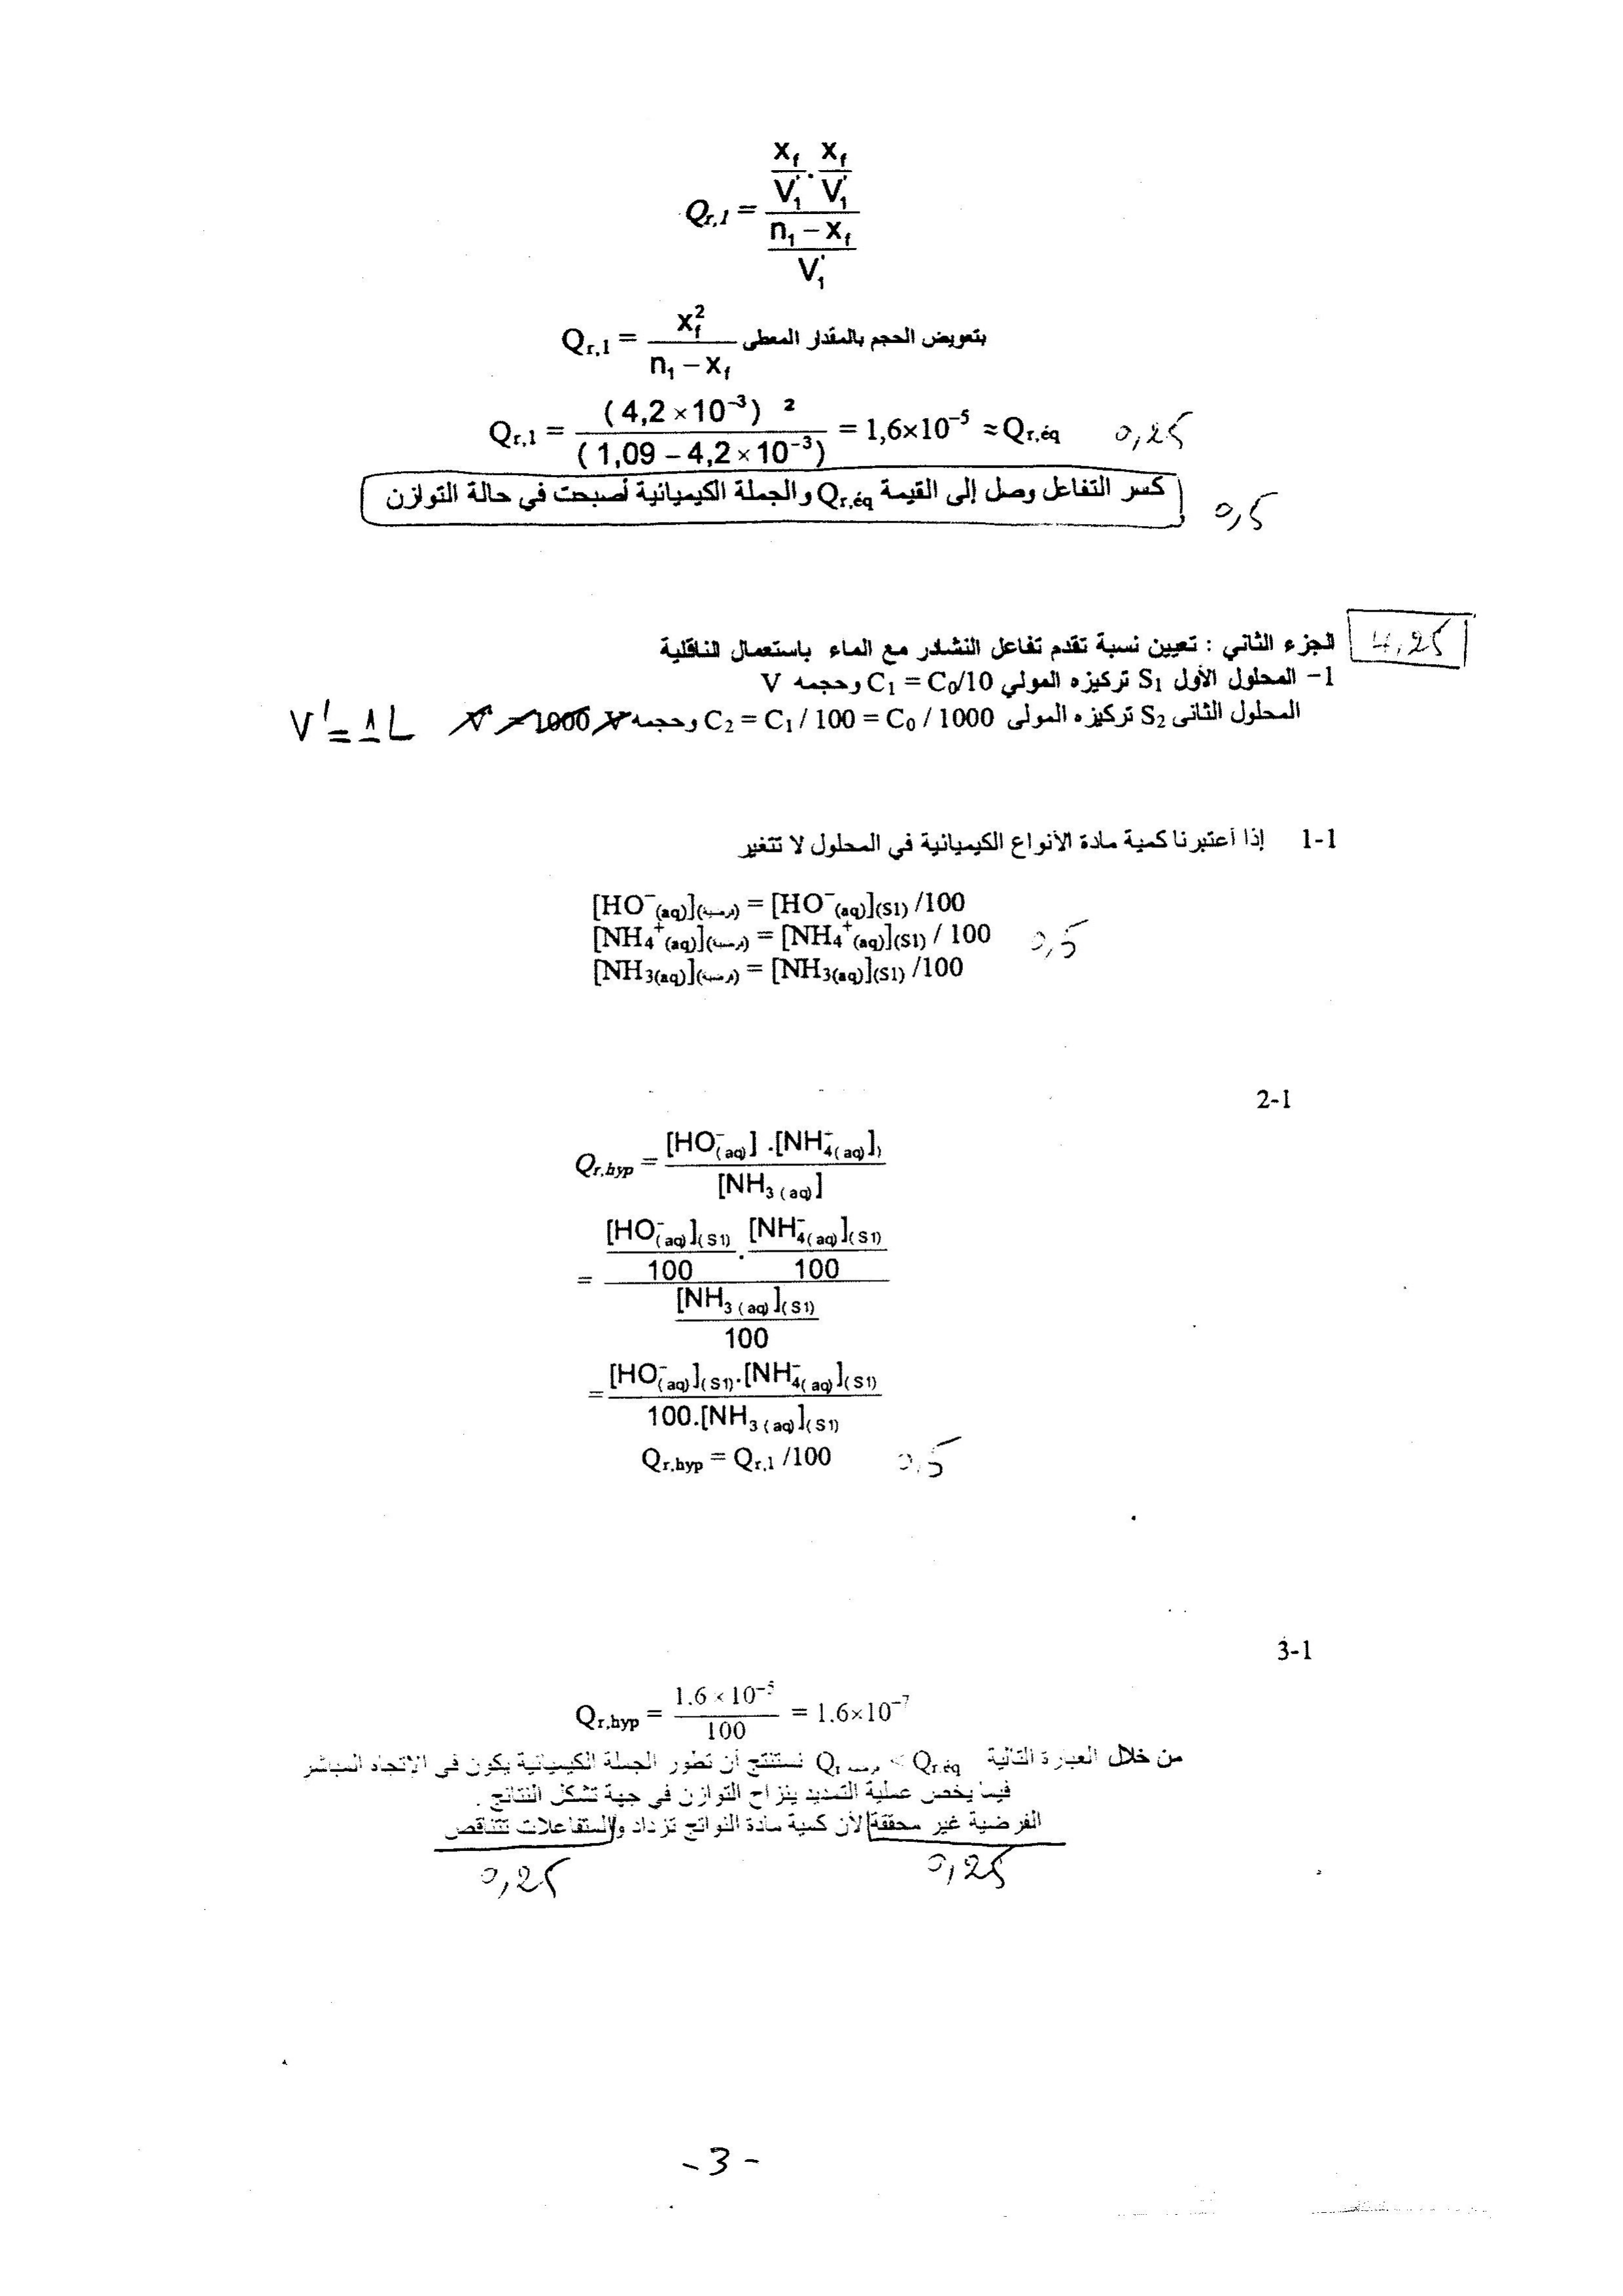 Q_{r,1} = \frac{\frac{x_f}{V'_1} \cdot \frac{x_f}{V'_1}}{\frac{n_1 - x_f}{V'_1}}
بتعويض الحجم بالمقدار المعطى Q_{r,1} = \frac{x_f^2}{n_1 - x_f}
Q_{r,1} = \frac{(4,2×10^{-3})^2}{(1,09 - 4,2×10^{-3})} = 1,6×10^{-5} ≈ Q_{r,éq} 0,25
كسر التفاعل وصل إلى القيمة Q_{r,éq} والجملة الكيميائية أصبحت في حالة التوازن 0,5
الجزء الثاني : تعيين نسبة تقدم تفاعل النشادر مع الماء باستعمال الناقلية 4,25
1- المحلول الأول S1 تركيزه المولي C1 = C0/10 وحجمه V
المحلول الثاني S2 تركيزه المولي C2 = C1 / 100 = C0 / 1000 وحجمه V' = 1000 V V' = 1L
1-1 إذا أعتبرنا كمية مادة الأنواع الكيميائية في المحلول لا تتغير
[HO^-(aq)](فرضية) = [HO^-(aq)](S1) /100
[NH4^+(aq)](فرضية) = [NH4^+(aq)](S1) / 100 0,5
[NH3(aq)](فرضية) = [NH3(aq)](S1) /100
2-1
Q_{r,hyp} = \frac{[HO^-(aq)] .[NH4^-(aq)])}{[NH3(aq)]}
= \frac{\frac{[HO^-(aq)](S1)}{100} \cdot \frac{[NH4^-(aq)](S1)}{100}}{\frac{[NH3(aq)](S1)}{100}}
= \frac{[HO^-(aq)](S1).[NH4^-(aq)](S1)}{100.[NH3(aq)](S1)}
Q_{r,hyp} = Q_{r,1} /100 0,5
3-1
Q_{r,hyp} = \frac{1.6 × 10^{-5}}{100} = 1.6×10^{-7}
من خلال العبارة التالية Q_{r فرضية} < Q_{r,éq} نستنتج أن تطور الجملة الكيميائية يكون في الاتجاه المباشر
فيما يخص عملية التمديد ينزاح التوازن في جهة تشكل النتائج .
الفرضية غير محققة لأن كمية مادة النواتج تزداد والمتفاعلات تتناقص
0,25 0,25
-3-